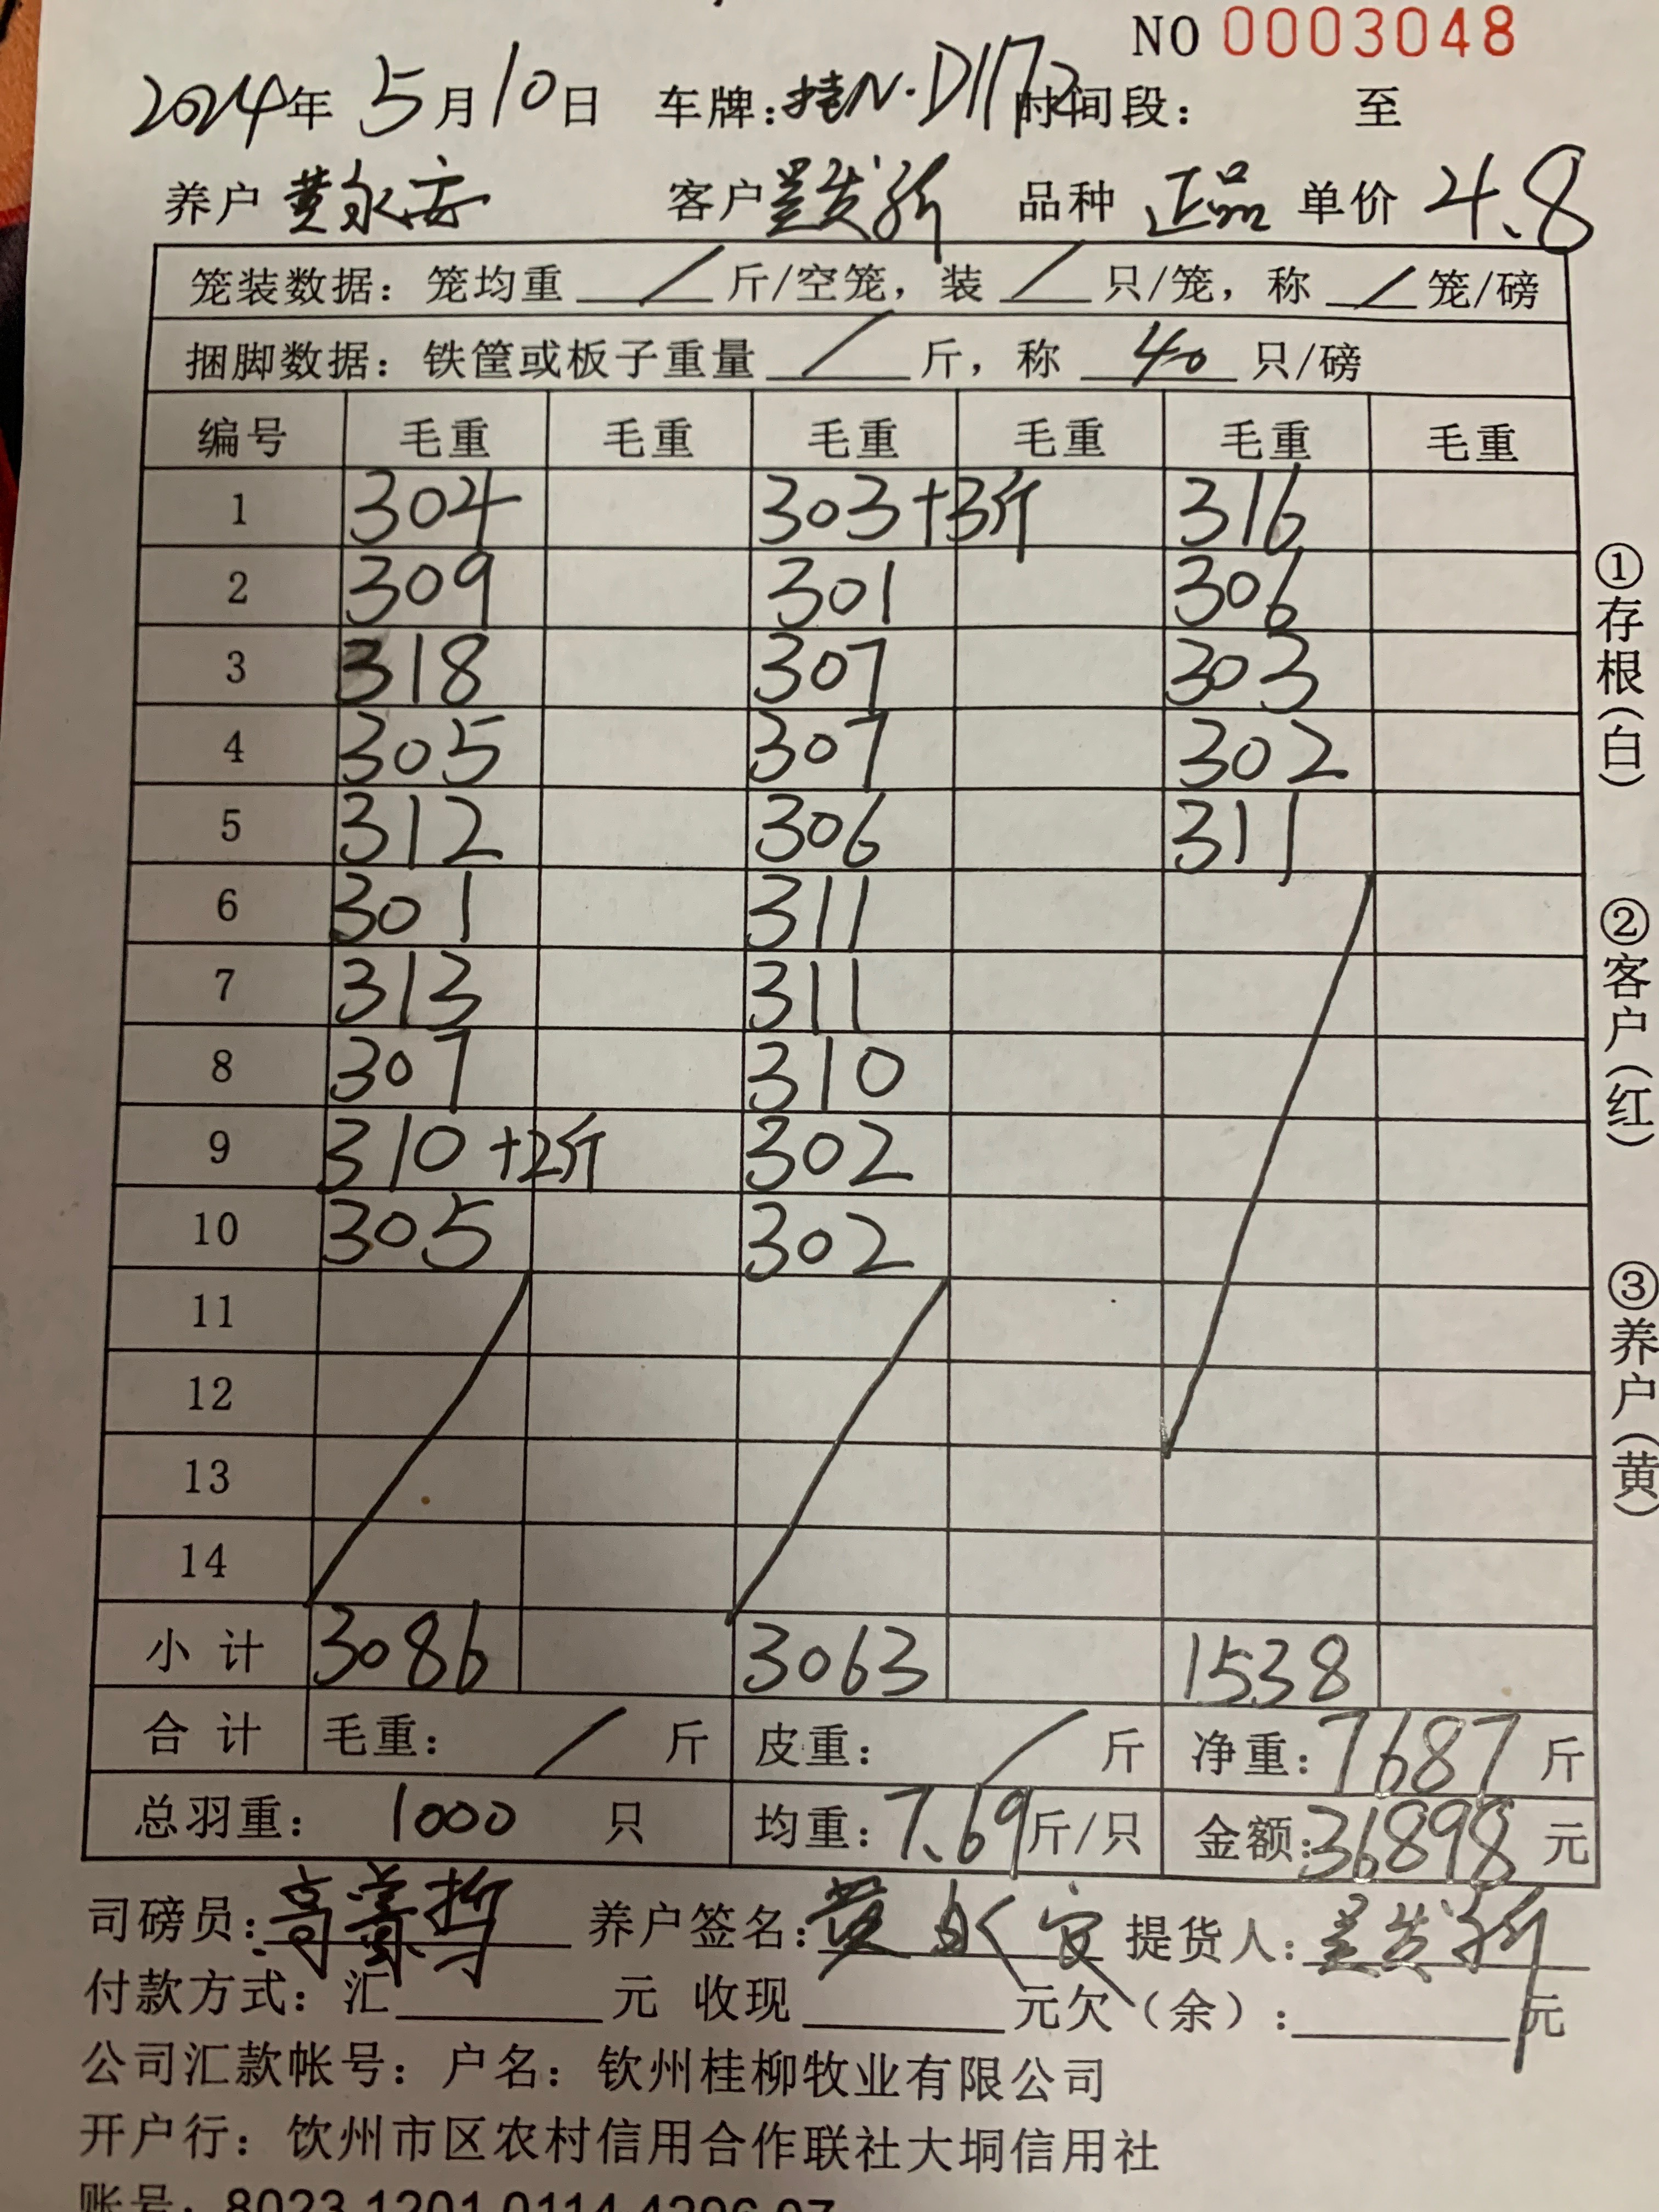 NO 0003048
2024年 5月10日 车牌:桂N·D1172 时间段: 至
养户 黄永安 客户 品种 正品 单价 4.8
笼装数据: 笼均重 / 斤/空笼, 装 / 只/笼, 称 / 笼/磅
捆脚数据: 铁筐或板子重量 / 斤, 称 40 只/磅
编号 毛重 毛重 毛重 毛重 毛重 毛重
1 304 303+3斤 316
2 309 301 306
3 318 307 303
4 305 307 302
5 312 306 311
6 301 311
7 313 311
8 307 310
9 310+2斤 302
10 305 302
11
12
13
14
小计 3086 3063 1538
合计 毛重: / 斤 皮重: / 斤 净重: 7687 斤
总羽重: 1000 只 均重: 7.69斤/只 金额:36898 元
司磅员: 养户签名:黄永安 提货人:
付款方式: 汇 元 收现 元欠(余): 元
公司汇款帐号: 户名: 钦州桂柳牧业有限公司
开户行: 饮州市区农村信用合作联社大垌信用社
账号: 8023 1201 0114 4296 07
①存根(白)
②客户(红)
③养户(黄)